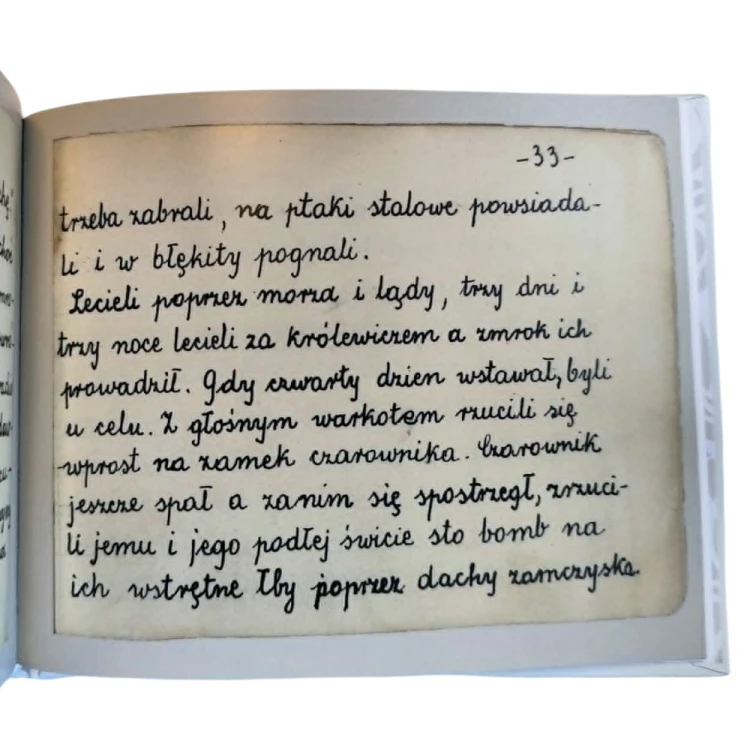 -33-
trzeba zabrali, na ptaki stalowe powsiada-
li i w błękity pognali.
Lecieli poprzez morza i lądy, trzy dni i
trzy noce lecieli za królewiczem a zmrok ich
prowadził. Gdy czwarty dzien wstawał, byli
u celu. Z głośnym warkotem rzucili się
wprost na zamek czarownika. Czarownik
jeszcze spał a zanim się spostrzegł, zrzuci-
li jemu i jego podłej świcie sto bomb na
ich wstrętne łby poprzez dachy zamczyska.